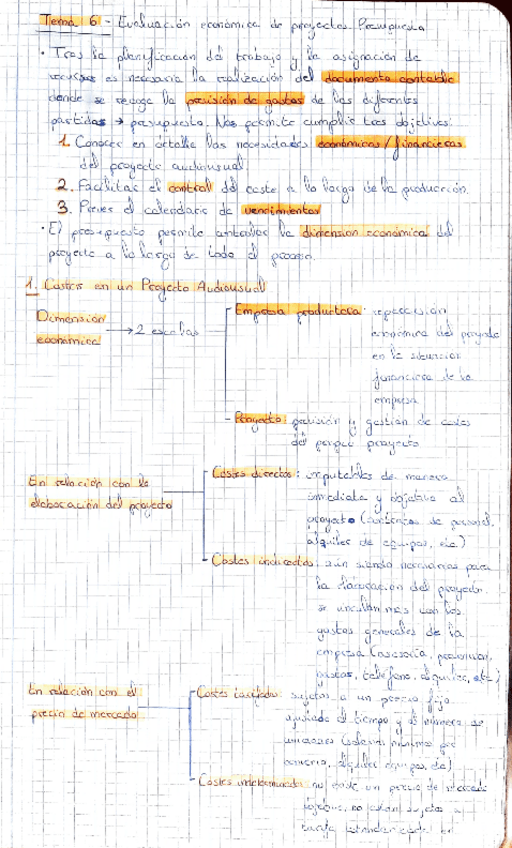 Tema 6 - Evaluación económica de proyectos. Presupuesto
· Tras la planificación del trabajo y la asignación de
recursos es necesaria la realización del documento contable
donde se recoge la previsión de gastos de las diferentes
partidas → presupuesto. Nos permite cumplir tres objetivos:
1. Conocer en detalle las necesidades económicas/financieras
del proyecto audiovisual.
2. Facilitar el control del coste a lo largo de la producción.
3. Prever el calendario de vencimientos
· El presupuesto permite controlar la dimensión económica del
proyecto a lo largo de todo el proceso.
1. Costes en un Proyecto Audiovisual
Dimensión económica → 2 escalas
Empresa productora: repercusión
económica del proyecto
en la situación
financiera de la
empresa
- Proyecto: previsión y gestión de costes
del propio proyecto
En relación con la
elaboración del proyecto
Costes directos: imputables de manera
inmediata y objetiva al
proyecto (contratos de personal,
alquiler de equipos, etc.)
Costes indirectos: aún siendo necesarios para
la elaboración del proyecto
se vinculan más con los
gastos generales de la
empresa (asesoría,
teléfono, alquiler, etc.)
En relación con el
precio de mercado
Costes tarifados: sujetos a un precio fijo
ajustado al tiempo y al número de
(salarios mínimos por
convenio, alquiler equipos, etc)
Costes indeterminados: no existe un precio de mercado
no están sujetos a
tarifa estándar